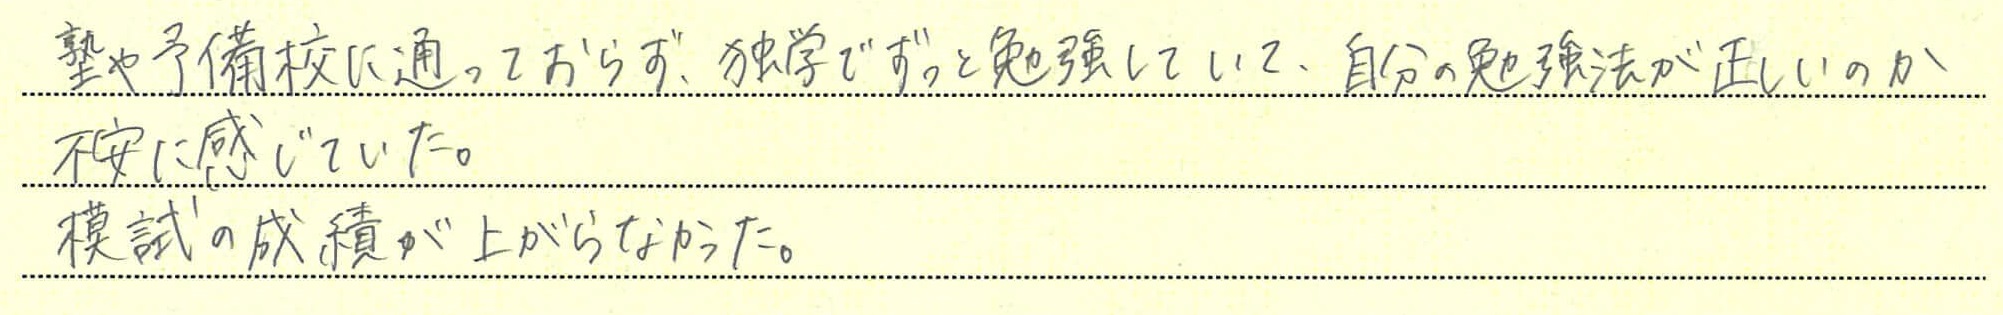 塾や予備校に通っておらず、独学でずっと勉強していて、自分の勉強法が正しいのか
不安に感じていた。
模試の成績が上がらなかった。